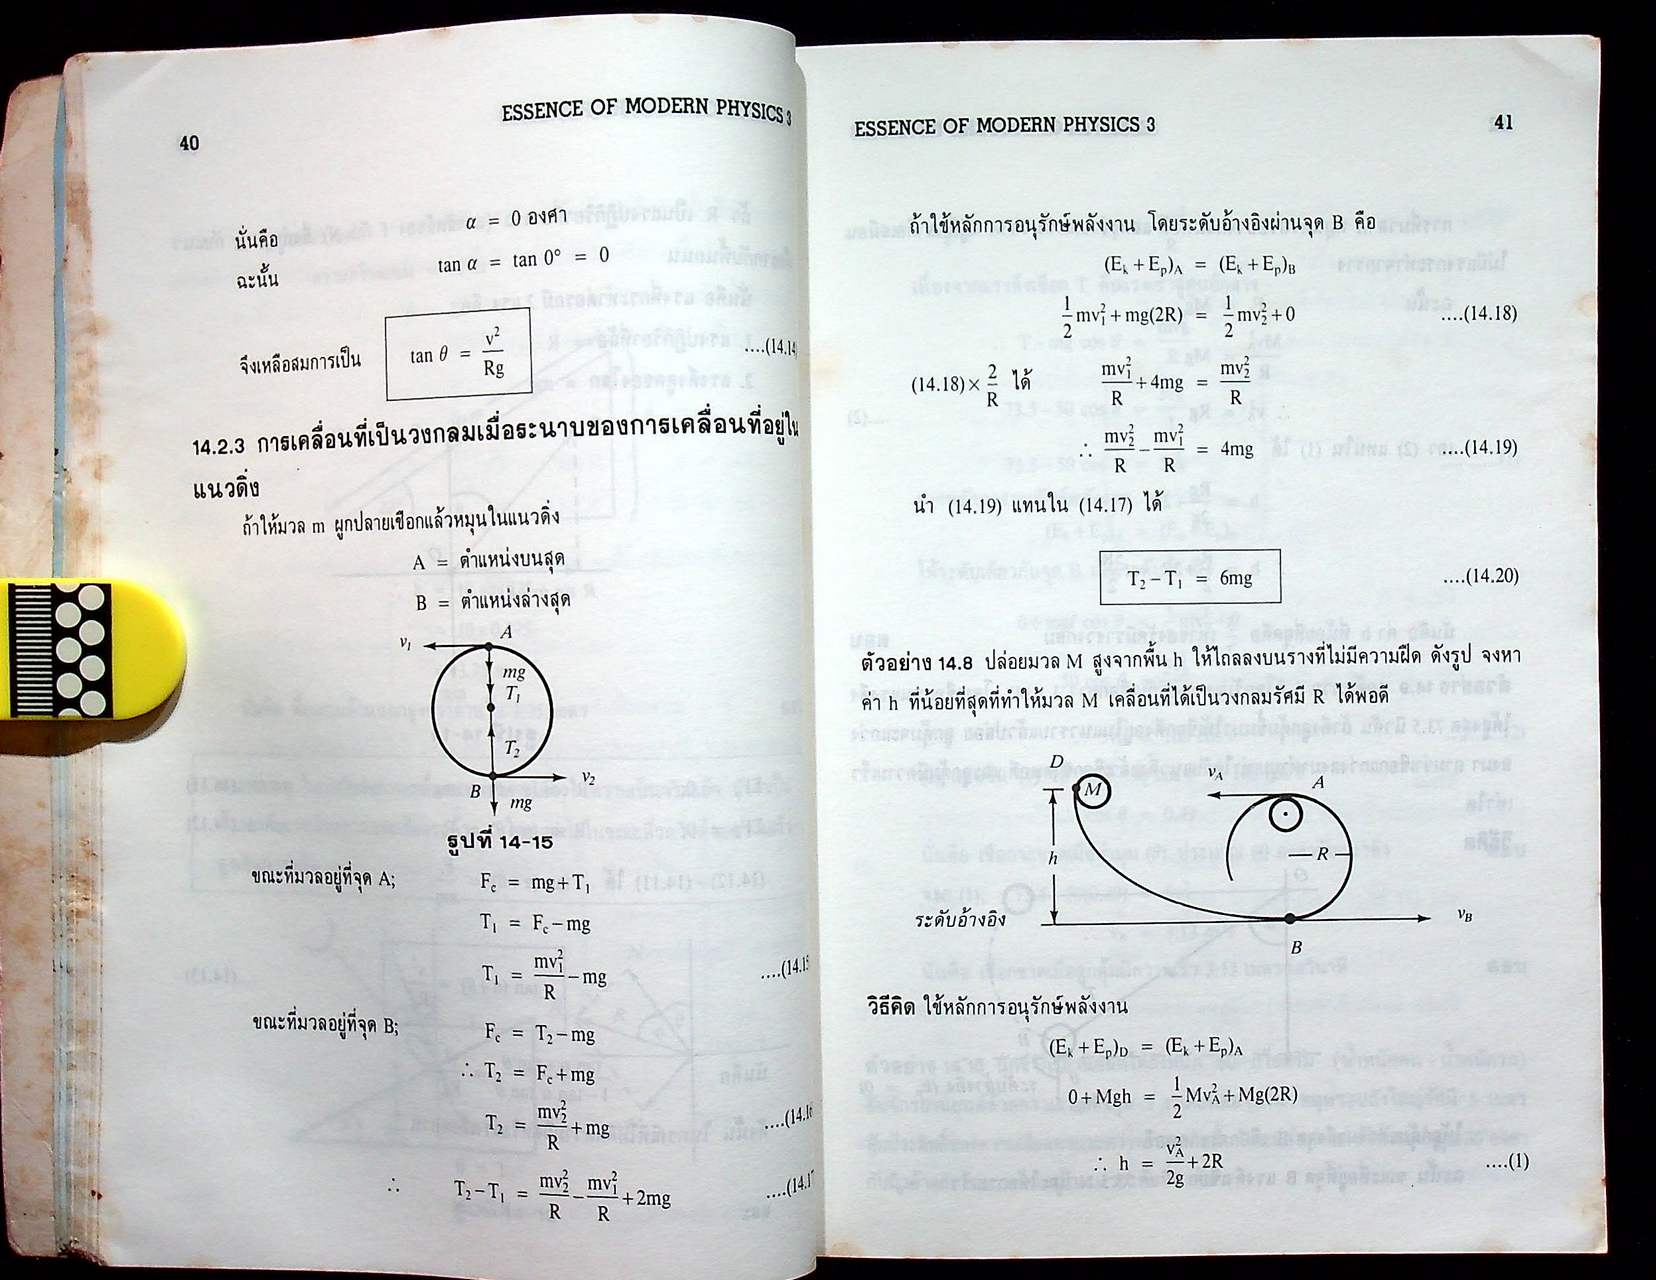 40
ESSENCE OF MODERN PHYSICS 3
นั่นคือ α = 0 องศา
ฉะนั้น tan α = tan 0° = 0
จึงเหลือสมการเป็น tan θ = v²/Rg ....(14.14
14.2.3 การเคลื่อนที่เป็นวงกลมเมื่อระนาบของการเคลื่อนที่อยู่ใน
แนวดิ่ง
ถ้าให้มวล m ผูกปลายเชือกแล้วหมุนในแนวดิ่ง
A = ตำแหน่งบนสุด
B = ตำแหน่งล่างสุด
v₁ A
mg
T₁
T₂
B v₂
mg
รูปที่ 14-15
ขณะที่มวลอยู่ที่จุด A; F_c = mg+T₁
T₁ = F_c−mg
T₁ = mv₁²/R − mg ....(14.15
ขณะที่มวลอยู่ที่จุด B; F_c = T₂−mg
∴ T₂ = F_c+mg
T₂ = mv₂²/R + mg ....(14.16
∴ T₂−T₁ = mv₂²/R − mv₁²/R + 2mg ....(14.17
ESSENCE OF MODERN PHYSICS 3
41
ถ้าใช้หลักการอนุรักษ์พลังงาน โดยระดับอ้างอิงผ่านจุด B คือ
(E_k+E_p)_A = (E_k+E_p)_B
1/2 mv₁²+mg(2R) = 1/2 mv₂²+0 ....(14.18)
(14.18)× 2/R ได้ mv₁²/R + 4mg = mv₂²/R
∴ mv₂²/R − mv₁²/R = 4mg ....(14.19)
นำ (14.19) แทนใน (14.17) ได้
T₂−T₁ = 6mg ....(14.20)
ตัวอย่าง 14.8 ปล่อยมวล M สูงจากพื้น h ให้ไถลลงบนรางที่ไม่มีความฝืด ดังรูป จงหา
ค่า h ที่น้อยที่สุดที่ทำให้มวล M เคลื่อนที่ได้เป็นวงกลมรัศมี R ได้พอดี
D M v_A A
h R
ระดับอ้างอิง v_B
B
วิธีคิด ใช้หลักการอนุรักษ์พลังงาน
(E_k+E_p)_D = (E_k+E_p)_A
0+Mgh = 1/2 Mv_A²+Mg(2R)
∴ h = v_A²/2g + 2R ....(1)